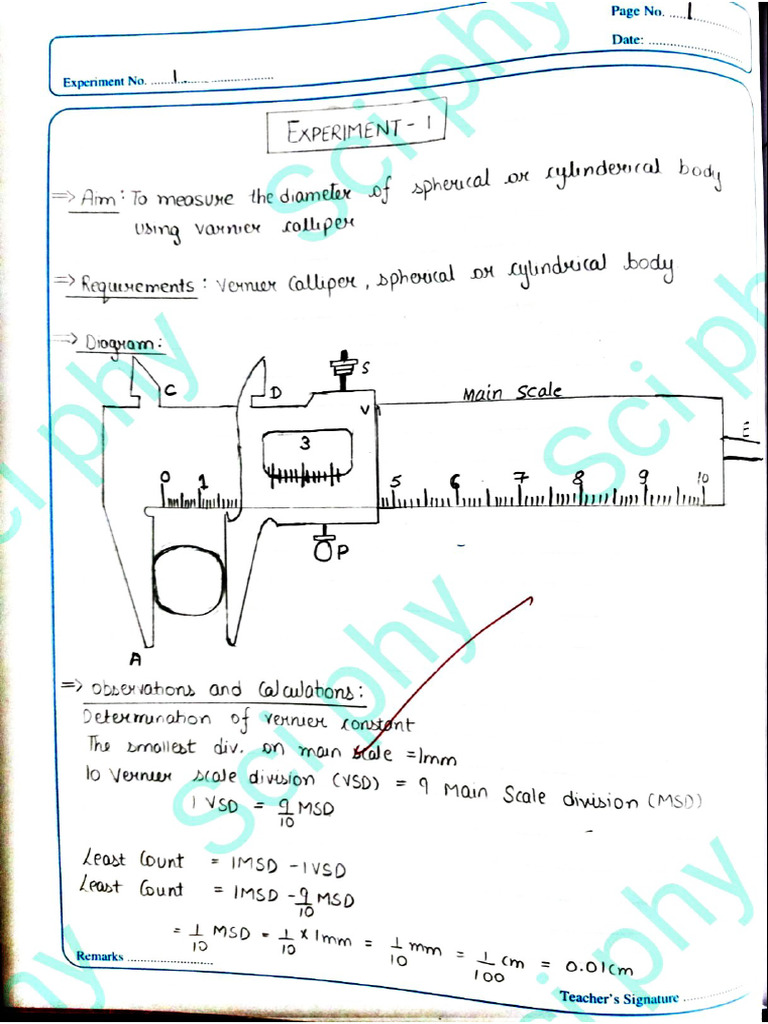 Page No. .....1
Date: ....................
Experiment No. ......1.........................
EXPERIMENT - 1
=> Aim : To measure the diameter of spherical or cylinderical body
using varnier calliper
=> Requirements : Vernier Calliper, spherical or cylindrical body
=> Diagram :
C
D
S
V
Main Scale
E
3
0 1
5 6 7 8 9 10
P
A
=> Observations and Calculations :
Determination of vernier constant
The smallest div. on main scale = 1mm
10 Vernier scale division (VSD) = 9 Main Scale division (MSD)
1 VSD = 9/10 MSD
Least Count = 1MSD - 1VSD
Least Count = 1MSD - 9/10 MSD
= 1/10 MSD = 1/10 × 1mm = 1/10 mm = 1/100 cm = 0.01cm
Remarks ........................
Teacher's Signature ..............
Sci phy
Sci phy
Sci phy
Sci phy
Sci phy